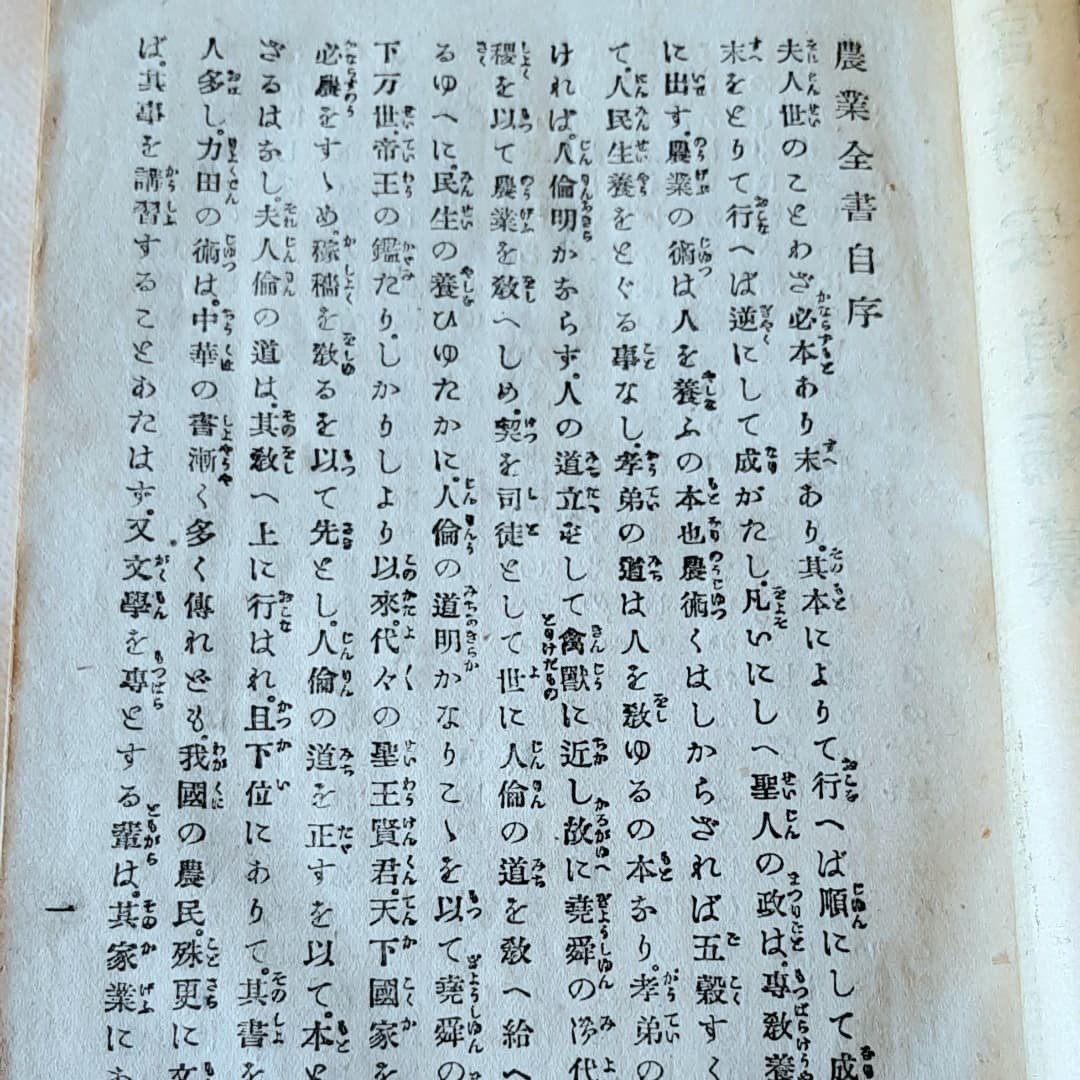 農業全書自序
夫人世のことわざ必本あり末あり。其本によりて行へば順にして成
末をとりて行へば逆にして成がたし。凡いにしへ聖人の政は。專敎養
に出す。農業の術は人を養ふの本也農術くはしからざれば五穀すく
て。人民生養をとぐる事なし。孝弟の道は人を敎ゆるの本なり。孝弟の
ければ。人倫明かならず。人の道立ずして禽獸に近し故に堯舜の御代
稷を以て農業を敎へしめ。契を司徒として世に人倫の道を敎へ給へ
るゆへに。民生の養ひゆたかに。人倫の道明かなりこゝを以て堯舜の
下万世。帝王の鑑たり。しかりしより以來。代々の聖王賢君。天下國家を
必農をすゝめ。稼穡を敎るを以て先とし。人倫の道を正すを以て。本と
ざるはなし。夫人倫の道は。其敎へ上に行はれ。且下位にありて。其書を
人多し。力田の術は。中華の書漸く多く傳れども。我國の農民。殊更に文
ば。其事を講習することあたはず。又文學を專とする輩は。其家業にあ
一